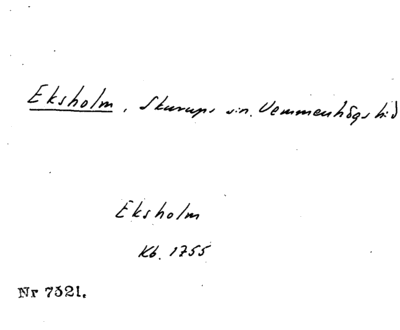 Eksholm, Skurups sn. Vemmenhögs hd
Eksholm
Kb. 1755
Nr 7321.